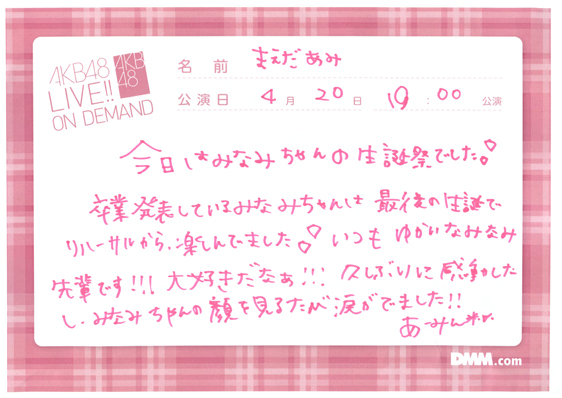 AKB48
LIVE!!
ON DEMAND
AKB
48
名 前 まえだあみ
公演日 4月20日 19:00 公演
今日はみなみちゃんの生誕祭でした♡
卒業発表しているみなみちゃんは 最後の生誕で
リハーサルから、楽しんでました♡ いつも ゆかいなみなみ
先輩です!!! 大好きだなぁ!!! 久しぶりに感動した
し、みなみちゃんの顔を見るたび涙がでました!!
あーみん
DMM.com